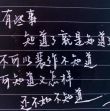 有些事
知道了就是知道了
不可以装作不知道
可知道又怎样
还不如不知道